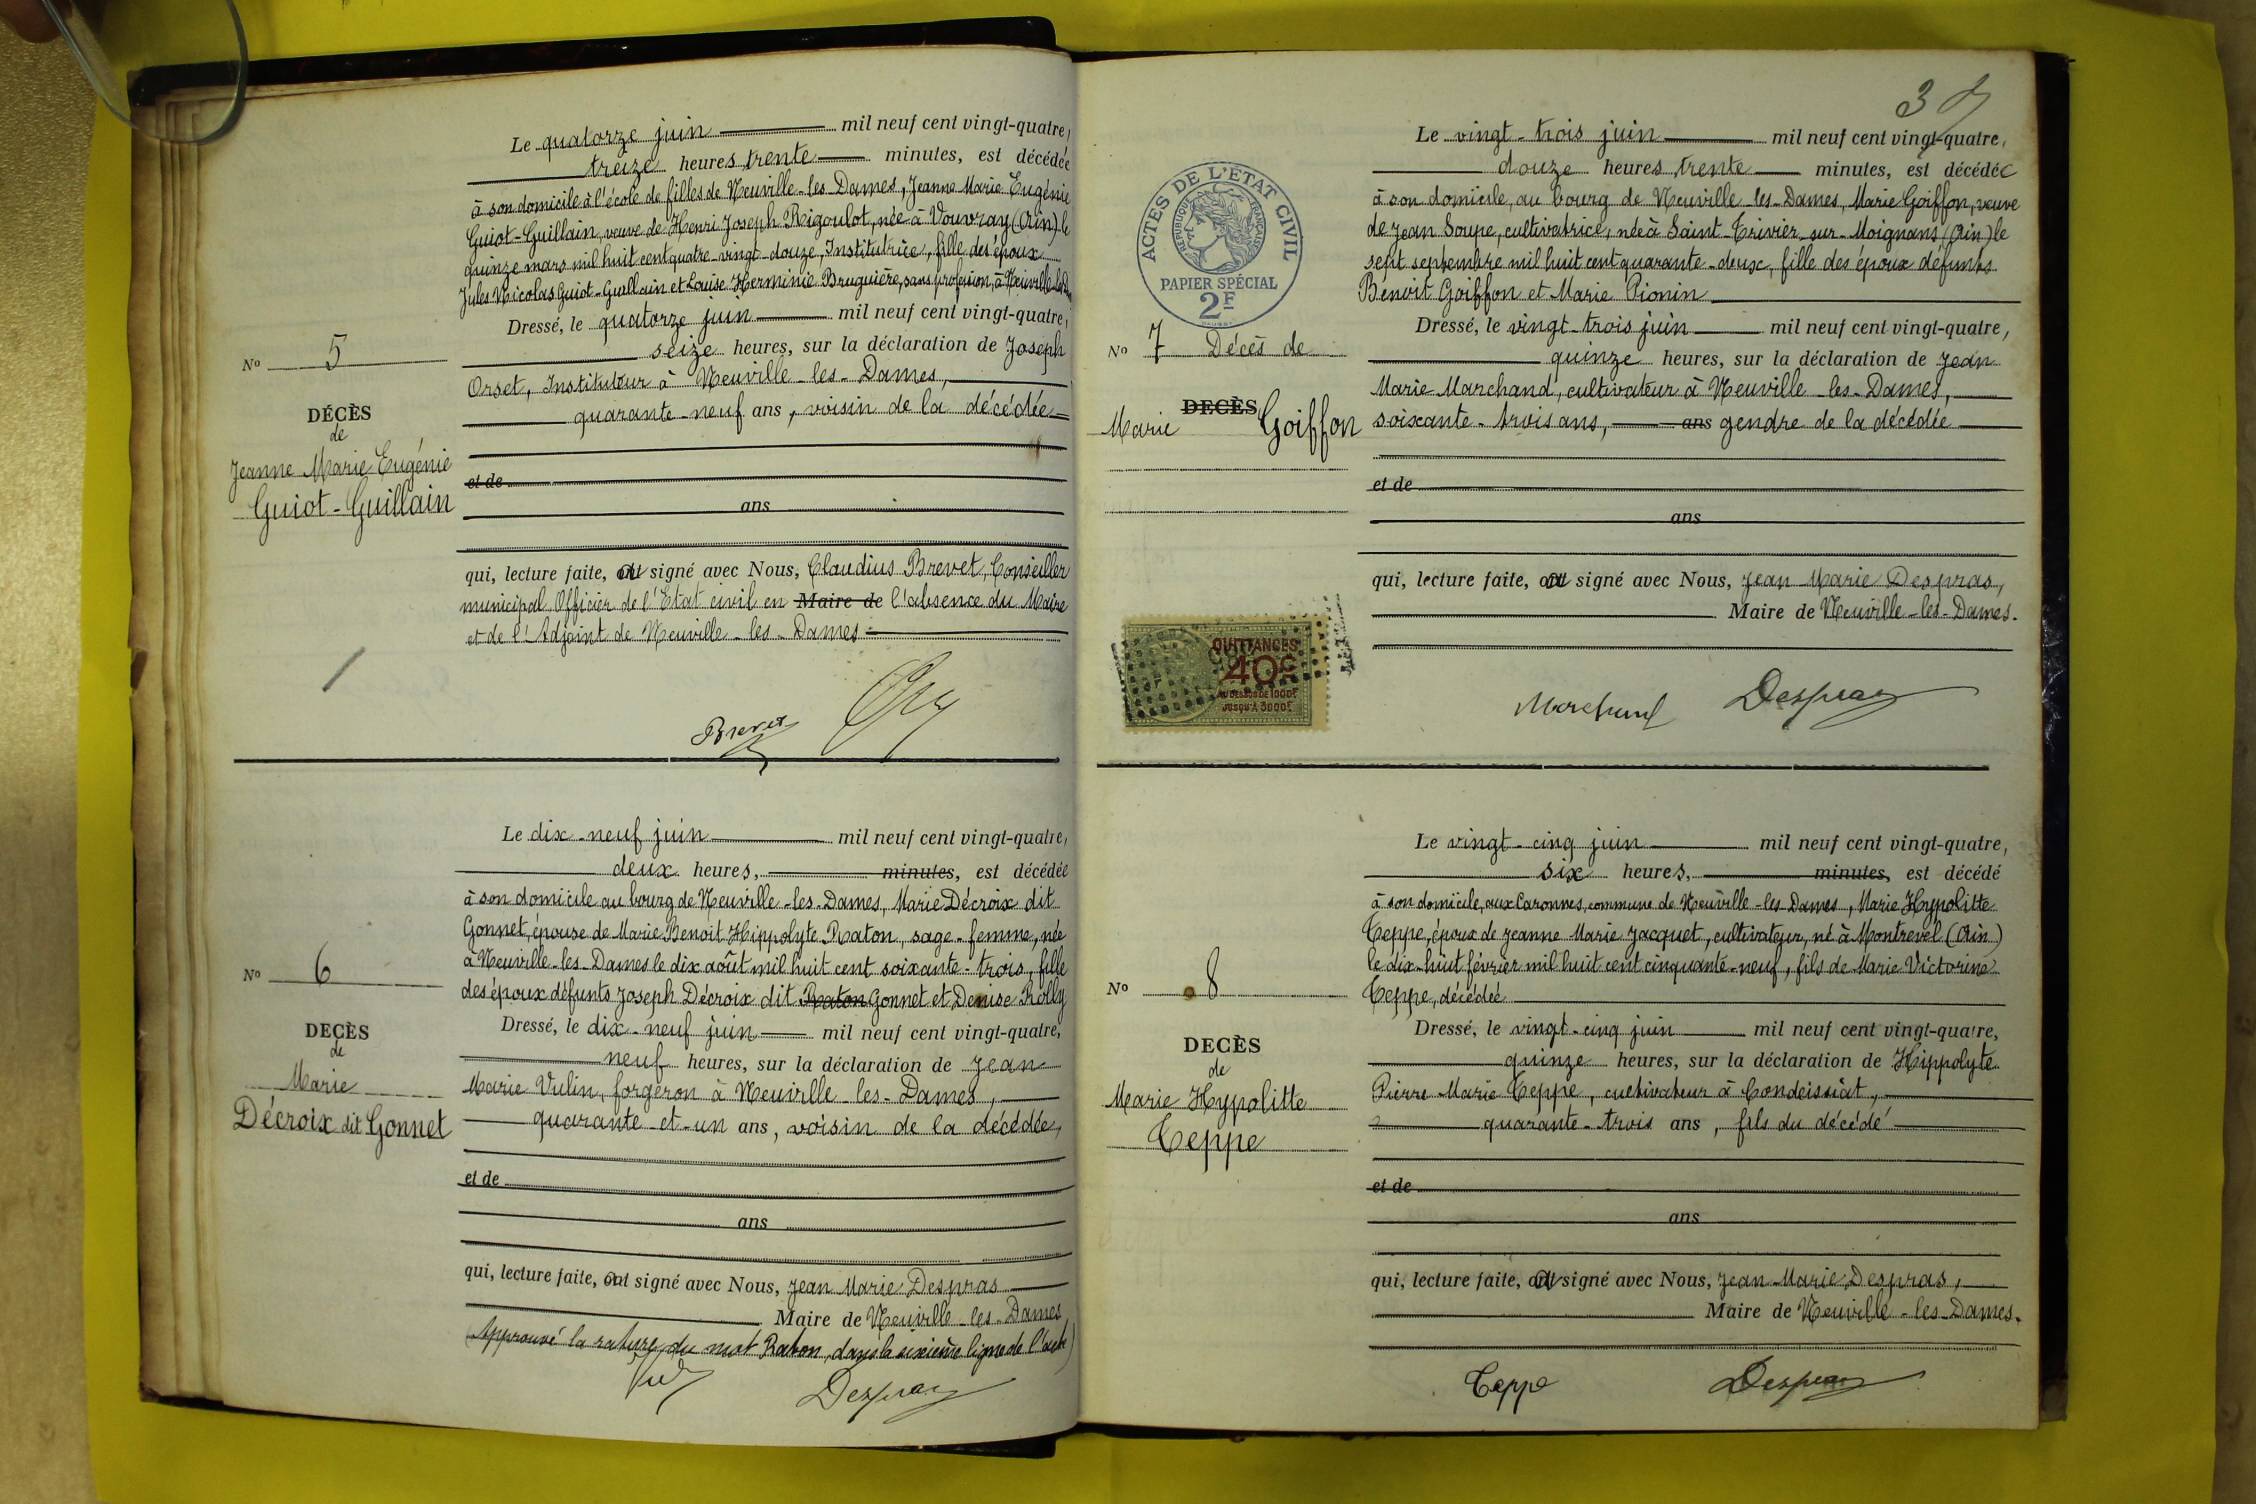 Le quatorze juin mil neuf cent vingt-quatre,
treize heures trente minutes, est décédée
à son domicile à l'école de filles de Neuville-les-Dames, Jeanne Marie Eugénie
Guiot-Guillain, veuve de Henri Joseph Rigoulot, née à Vouvray (Ain) le
quinze mars mil huit cent quatre-vingt-douze, Institutrice, fille des époux
Jules Nicolas Guiot-Guillain et Louise Herminie Bruguière, sans profession, à Neuville-les-D
Dressé, le quatorze juin mil neuf cent vingt-quatre,
seize heures, sur la déclaration de Joseph
No 5
Orset, Instituteur à Neuville-les-Dames,
quarante-neuf ans, voisin de la décédée
DÉCÈS
de
Jeanne Marie Eugénie
Guiot-Guillain
et de
ans
qui, lecture faite, ont signé avec Nous, Claudius Brevet, Conseiller
municipal Officier de l'Etat civil en Maire de l'absence du Maire
et de l'Adjoint de Neuville-les-Dames
Brevet
Le dix-neuf juin mil neuf cent vingt-quatre,
deux heures, minutes, est décédée
à son domicile au bourg de Neuville-les-Dames, Marie Décroix dit
Gonnet, épouse de Marie Benoit Hippolyte Raton, sage-femme, née
à Neuville-les-Dames le dix août mil huit cent soixante-trois, fille
des époux défunts Joseph Décroix dit Raton Gonnet et Denise Rolly
No 6
Dressé, le dix-neuf juin mil neuf cent vingt-quatre,
neuf heures, sur la déclaration de Jean
DECÈS
de
Marie
Décroix dit Gonnet
Marie Vulin, forgeron à Neuville-les-Dames,
quarante-et-un ans, voisin de la décédée,
et de
ans
qui, lecture faite, ont signé avec Nous, Jean Marie Despras
Maire de Neuville-les-Dames
(Approuvé la rature du mot Raton, dans la sixième ligne de l'acte)
Despras
3
Le vingt-trois juin mil neuf cent vingt-quatre,
douze heures trente minutes, est décédée
à son domicile, au bourg de Neuville-les-Dames, Marie Goiffon, veuve
de Jean Soupe, cultivatrice, née à Saint-Trivier-sur-Moignans (Ain) le
sept septembre mil huit cent quarante-deux, fille des époux défunts
Benoit Goiffon et Marie Pionin
ACTES DE L'ÉTAT CIVIL
RÉPUBLIQUE FRANÇAISE
PAPIER SPÉCIAL
2F
Dressé, le vingt-trois juin mil neuf cent vingt-quatre,
quinze heures, sur la déclaration de Jean
No 7 Décès de
DECÈS
Marie Goiffon
Marie Marchand, cultivateur à Neuville-les-Dames,
soixante-trois ans, ans gendre de la décédée
et de
ans
qui, lecture faite, ont signé avec Nous, Jean Marie Despras,
Maire de Neuville-les-Dames.
QUITTANCES
40c
AU DESSUS DE 1000F
JUSQU'À 3000F
Marchand Despras
Le vingt-cinq juin mil neuf cent vingt-quatre,
six heures, minutes, est décédé
à son domicile, aux Caronnes, commune de Neuville-les-Dames, Marie Hypolitte
Teppe, époux de Jeanne Marie Jacquet, cultivateur, né à Montrevel (Ain)
le dix-huit février mil huit cent cinquante-neuf, fils de Marie Victorine
Teppe, décédée
No 8
Dressé, le vingt-cinq juin mil neuf cent vingt-quatre,
quinze heures, sur la déclaration de Hippolyte
DECÈS
de
Marie Hypolitte
Teppe
Pierre Marie Teppe, cultivateur à Condeissiat,
quarante-trois ans, fils du décédé
et de
ans
qui, lecture faite, ont signé avec Nous, Jean-Marie Despras,
Maire de Neuville-les-Dames.
Teppe Despras